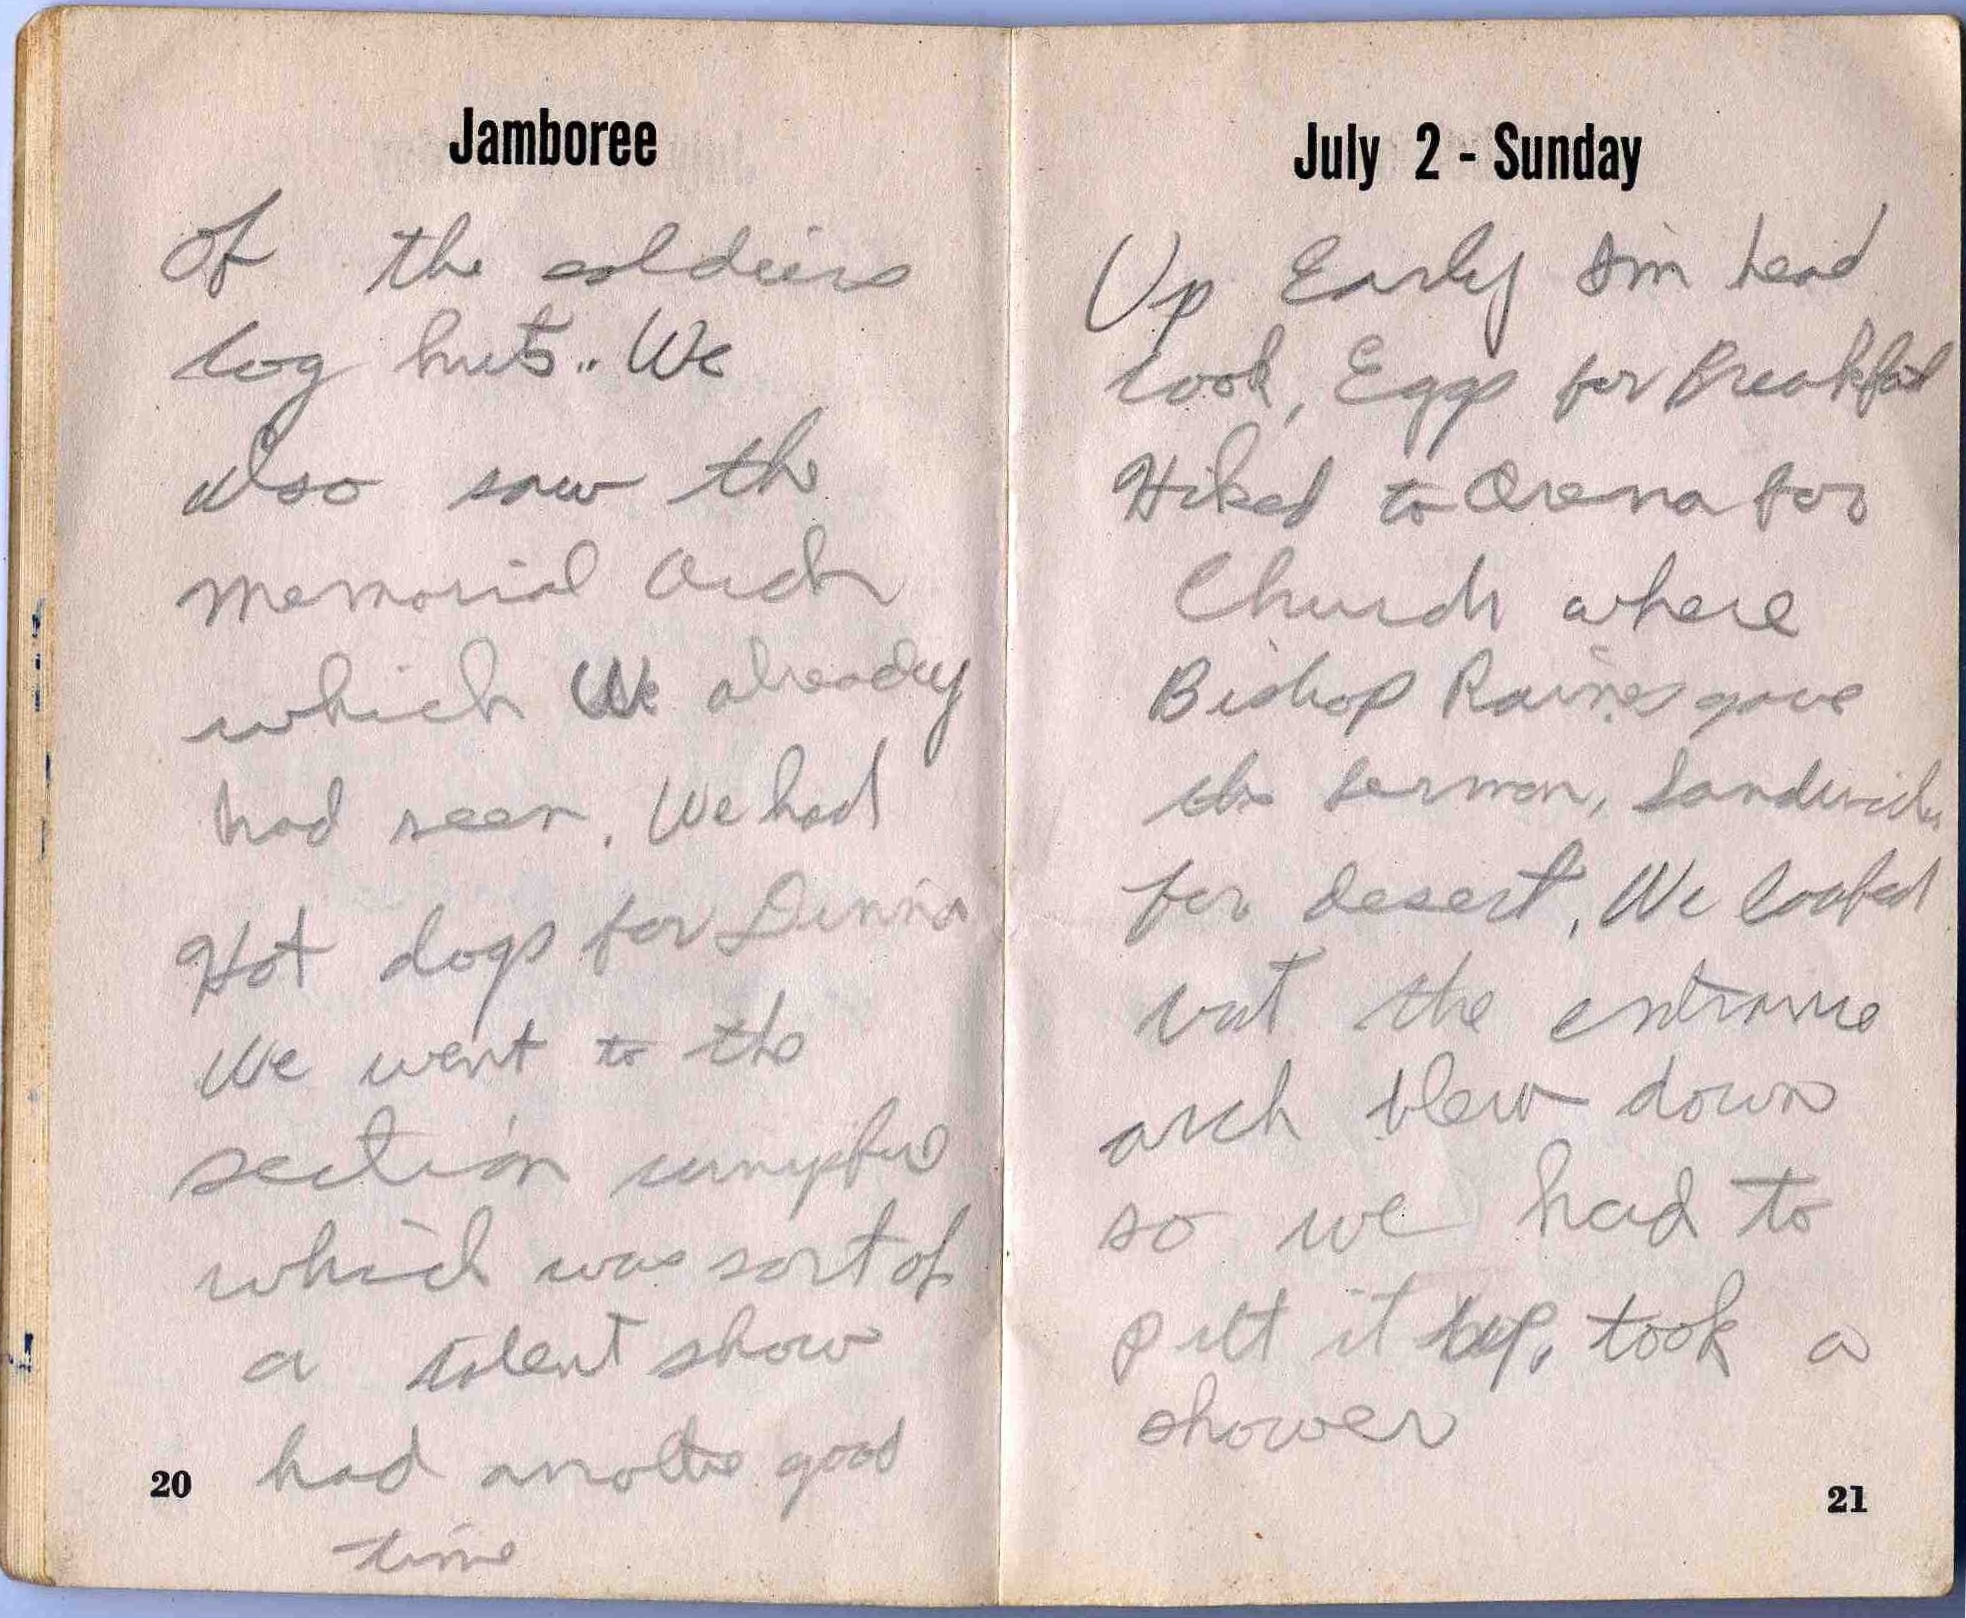 Jamboree
Of the soldiers
log huts.. We
also saw the
memorial arch
which We already
had seen. We had
Hot dogs for Dinner
We went to the
section campfire
which was sort of
a talent show
had another good
time
20
July 2 - Sunday
Up Early Im head
cook, Eggs for Breakfast
Hiked to Arena for
Church where
Bishop Raines gave
the sermon, Sandwiches
for desert, We loafed
but the entrance
arch blew down
so we had to
putt it up, took a
shower
21